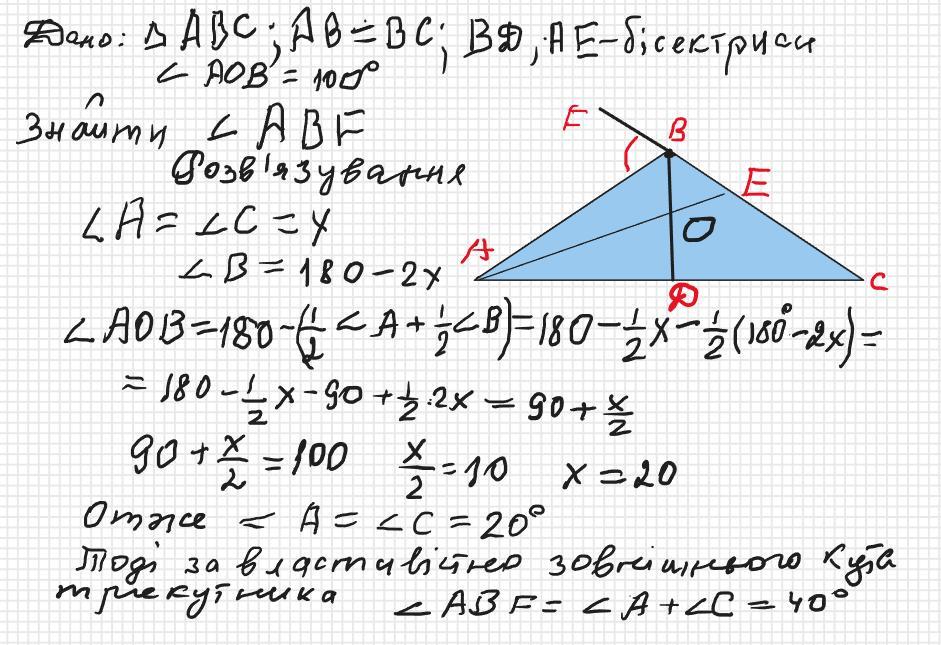 Дано: Δ ABC; AB = BC; BD, AE - бісектриси
∠ AOB = 100°
Знайти ∠ ABF
Розв'язування
∠A = ∠C = x
∠B = 180 - 2x
∠AOB = 180 - (1/2 ∠A + 1/2 ∠B) = 180 - 1/2 x - 1/2 (180° - 2x) =
= 180 - 1/2 x - 90 + 1/2 · 2x = 90 + x/2
90 + x/2 = 100 x/2 = 10 x = 20
Отже ∠ A = ∠ C = 20°
Тоді за властивістю зовнішнього кута
трикутника ∠ ABF = ∠ A + ∠C = 40°
F
B
E
O
A
D
C